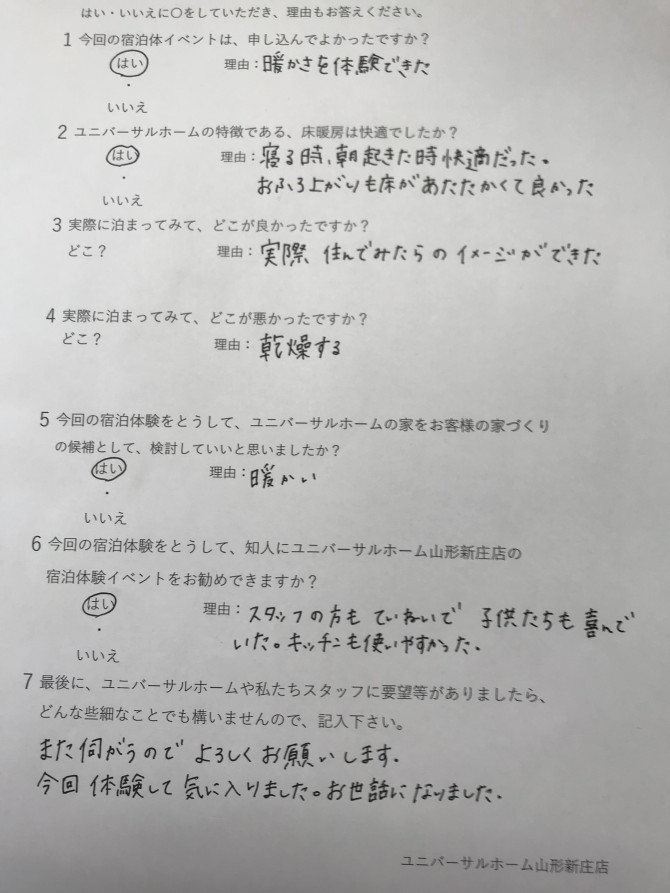 はい・いいえに〇をしていただき、理由もお答えください。
1 今回の宿泊体イベントは、申し込んでよかったですか？
はい 理由：暖かさを体験できた
・
いいえ
2 ユニバーサルホームの特徴である、床暖房は快適でしたか？
はい 理由：寝る時、朝起きた時快適だった。
・ おふろ上がりも床があたたかくて良かった
いいえ
3 実際に泊まってみて、どこが良かったですか？
どこ？ 理由：実際 住んでみたらの イメージができた
4 実際に泊まってみて、どこが悪かったですか？
どこ？ 理由：乾燥する
5 今回の宿泊体験をとうして、ユニバーサルホームの家をお客様の家づくり
の候補として、検討していいと思いましたか？
はい 理由：暖かい
・
いいえ
6 今回の宿泊体験をとうして、知人にユニバーサルホーム山形新庄店の
宿泊体験イベントをお勧めできますか？
はい 理由：スタッフの方も ていねいで 子供たちも 喜んで
・ いた。キッチンも使いやすかった.
いいえ
7 最後に、ユニバーサルホームや私たちスタッフに要望等がありましたら、
どんな些細なことでも構いませんので、記入下さい。
また伺がうので よろしく お願いします.
今回 体験して 気に入りました。お世話になりました.
ユニバーサルホーム山形新庄店